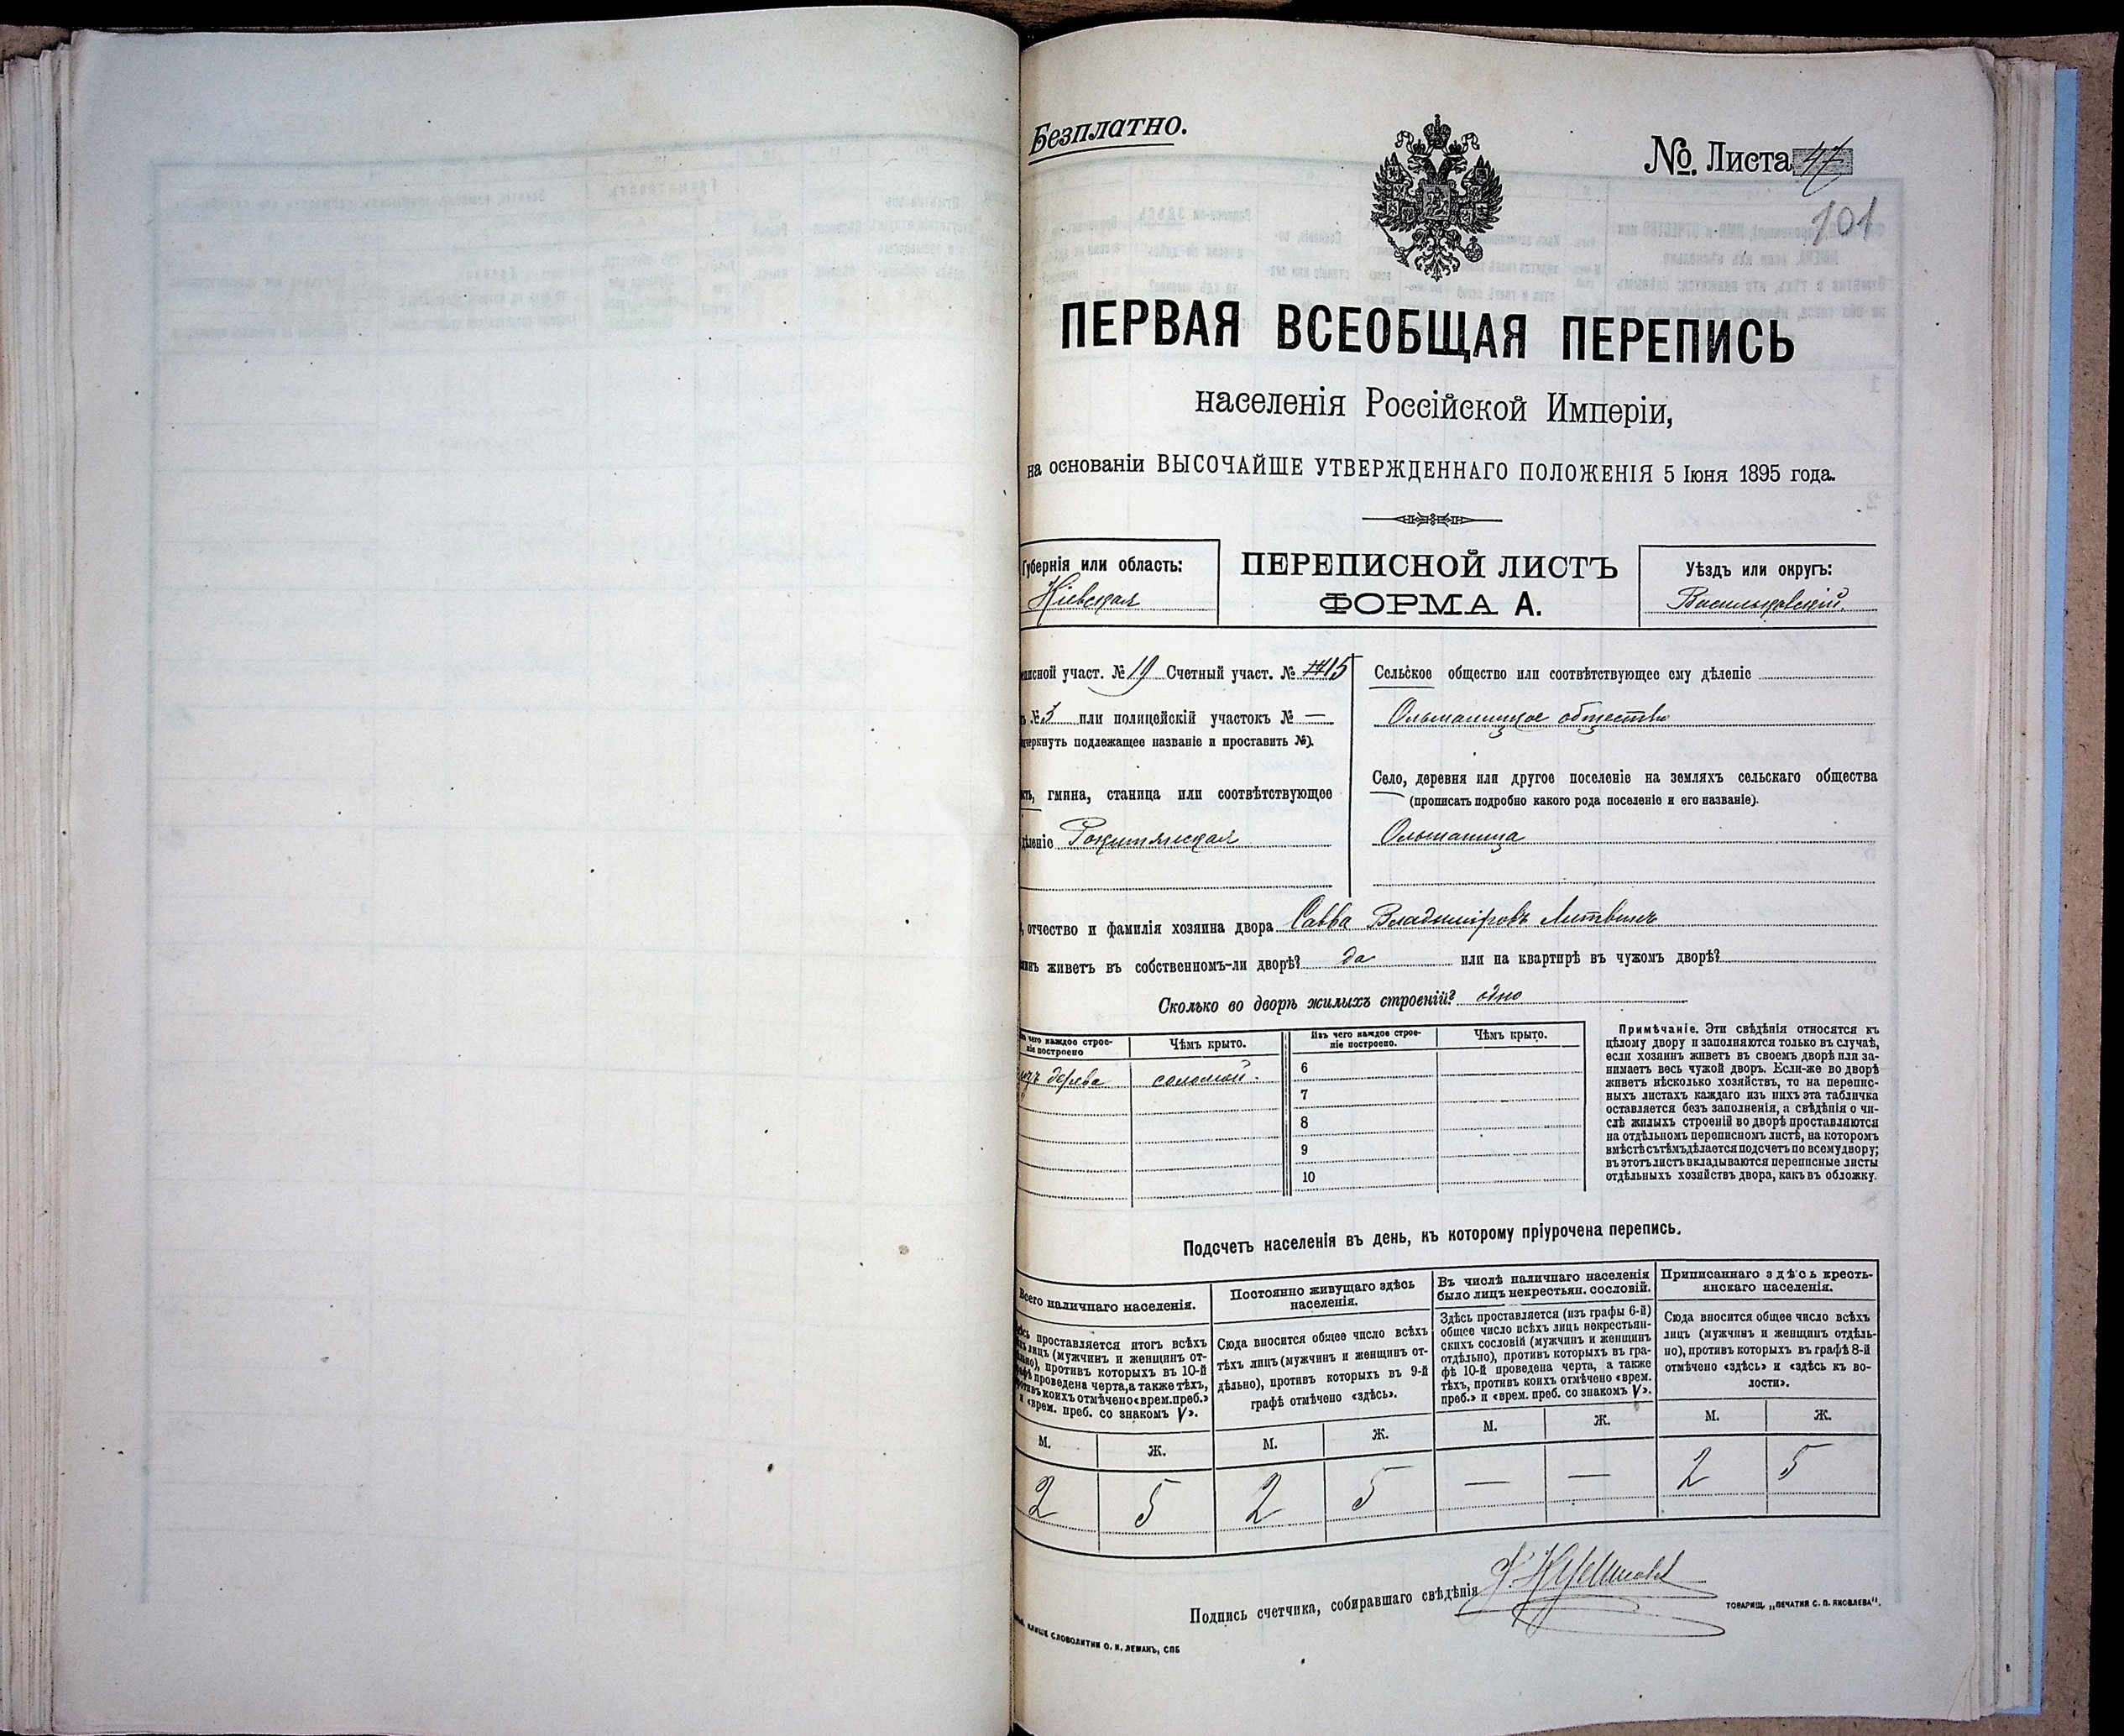 Безплатно.
№. Листа 47
101
ПЕРВАЯ ВСЕОБЩАЯ ПЕРЕПИСЬ
населенія Россійской Имперіи,
на основаніи ВЫСОЧАЙШЕ УТВЕРЖДЕННАГО ПОЛОЖЕНІЯ 5 Іюня 1895 года.
Губернія или область:
Кіевская
ПЕРЕПИСНОЙ ЛИСТЪ
ФОРМА А.
Уѣздъ или округъ:
Васильковскій
писной участ. № 19 Счетный участ. № 15
ъ № 3 или полицейскій участокъ № —
черкнуть подлежащее названіе и проставить №).
сть, гмина, станица или соотвѣтствующее
дѣленіе Рокитянская
Сельское общество или соотвѣтствующее ему дѣленіе
Ольшаницкое общество
Село, деревня или другое поселеніе на земляхъ сельскаго общества
(прописать подробно какого рода поселеніе и его названіе).
Ольшаница
, отчество и фамилія хозяина двора Савва Владиміровъ Литвинъ
инъ живетъ въ собственномъ-ли дворѣ? да или на квартирѣ въ чужомъ дворѣ?
Сколько во дворѣ жилыхъ строеній? одно
Изъ чего каждое строе-
ніе построено
Чѣмъ крыто.
Изъ чего каждое строе-
ніе построено.
Чѣмъ крыто.
изъ дерева соломой.
6
7
8
9
10
Примѣчаніе. Эти свѣдѣнія относятся къ
цѣлому двору и заполняются только въ случаѣ,
если хозяинъ живетъ въ своемъ дворѣ или за-
нимаетъ весь чужой дворъ. Если-же во дворѣ
живетъ нѣсколько хозяйствъ, то на перепис-
ныхъ листахъ каждаго изъ нихъ эта табличка
оставляется безъ заполненія, а свѣдѣнія о чи-
слѣ жилыхъ строеній во дворѣ проставляются
на отдѣльномъ переписномъ листѣ, на которомъ
вмѣстѣ съ тѣмъ дѣлается подсчетъ по всему двору;
въ этотъ листъ вкладываются переписные листы
отдѣльныхъ хозяйствъ двора, какъ въ обложку.
Подсчетъ населенія въ день, къ которому пріурочена перепись.
Всего наличнаго населенія.
Здѣсь проставляется итогъ всѣхъ
тѣхъ лицъ (мужчинъ и женщинъ от-
дѣльно), противъ которыхъ въ 10-й
графѣ проведена черта, а также тѣхъ,
противъ коихъ отмѣчено «врем. преб.»
и «врем. преб. со знакомъ V».
М. Ж.
2 5
Постоянно живущаго здѣсь
населенія.
Сюда вносится общее число всѣхъ
тѣхъ лицъ (мужчинъ и женщинъ от-
дѣльно), противъ которыхъ въ 9-й
графѣ отмѣчено «здѣсь».
М. Ж.
2 5
Въ числѣ наличнаго населенія
было лицъ некрестьян. сословій.
Здѣсь проставляется (изъ графы 6-й)
общее число всѣхъ лицъ некрестьян-
скихъ сословій (мужчинъ и женщинъ
отдѣльно), противъ которыхъ въ гра-
фѣ 10-й проведена черта, а также
тѣхъ, противъ коихъ отмѣчено «врем.
преб.» и «врем. преб. со знакомъ V».
М. Ж.
— —
Приписаннаго здѣсь кресть-
янскаго населенія.
Сюда вносится общее число всѣхъ
лицъ (мужчинъ и женщинъ отдѣль-
но), противъ которыхъ въ графѣ 8-й
отмѣчено «здѣсь» и «здѣсь къ во-
лости».
М. Ж.
2 5
Подпись счетчика, собиравшаго свѣдѣнія
КЛИШЕ СЛОВОЛИТНИ О. И. ЛЕМАНЪ, СПБ
ТОВАРИЩ. „ПЕЧАТНЯ С. П. ЯКОВЛЕВА".